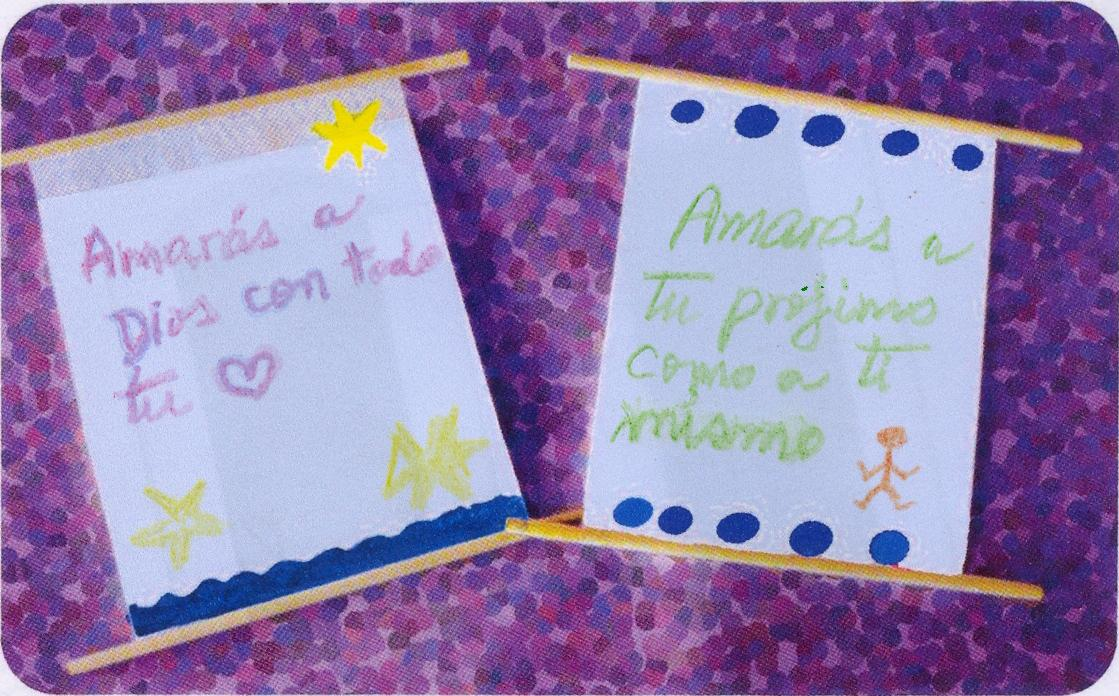 Amarás a
Dios con todo
tu ♡
Amarás a
tu prójimo
como a ti
mismo